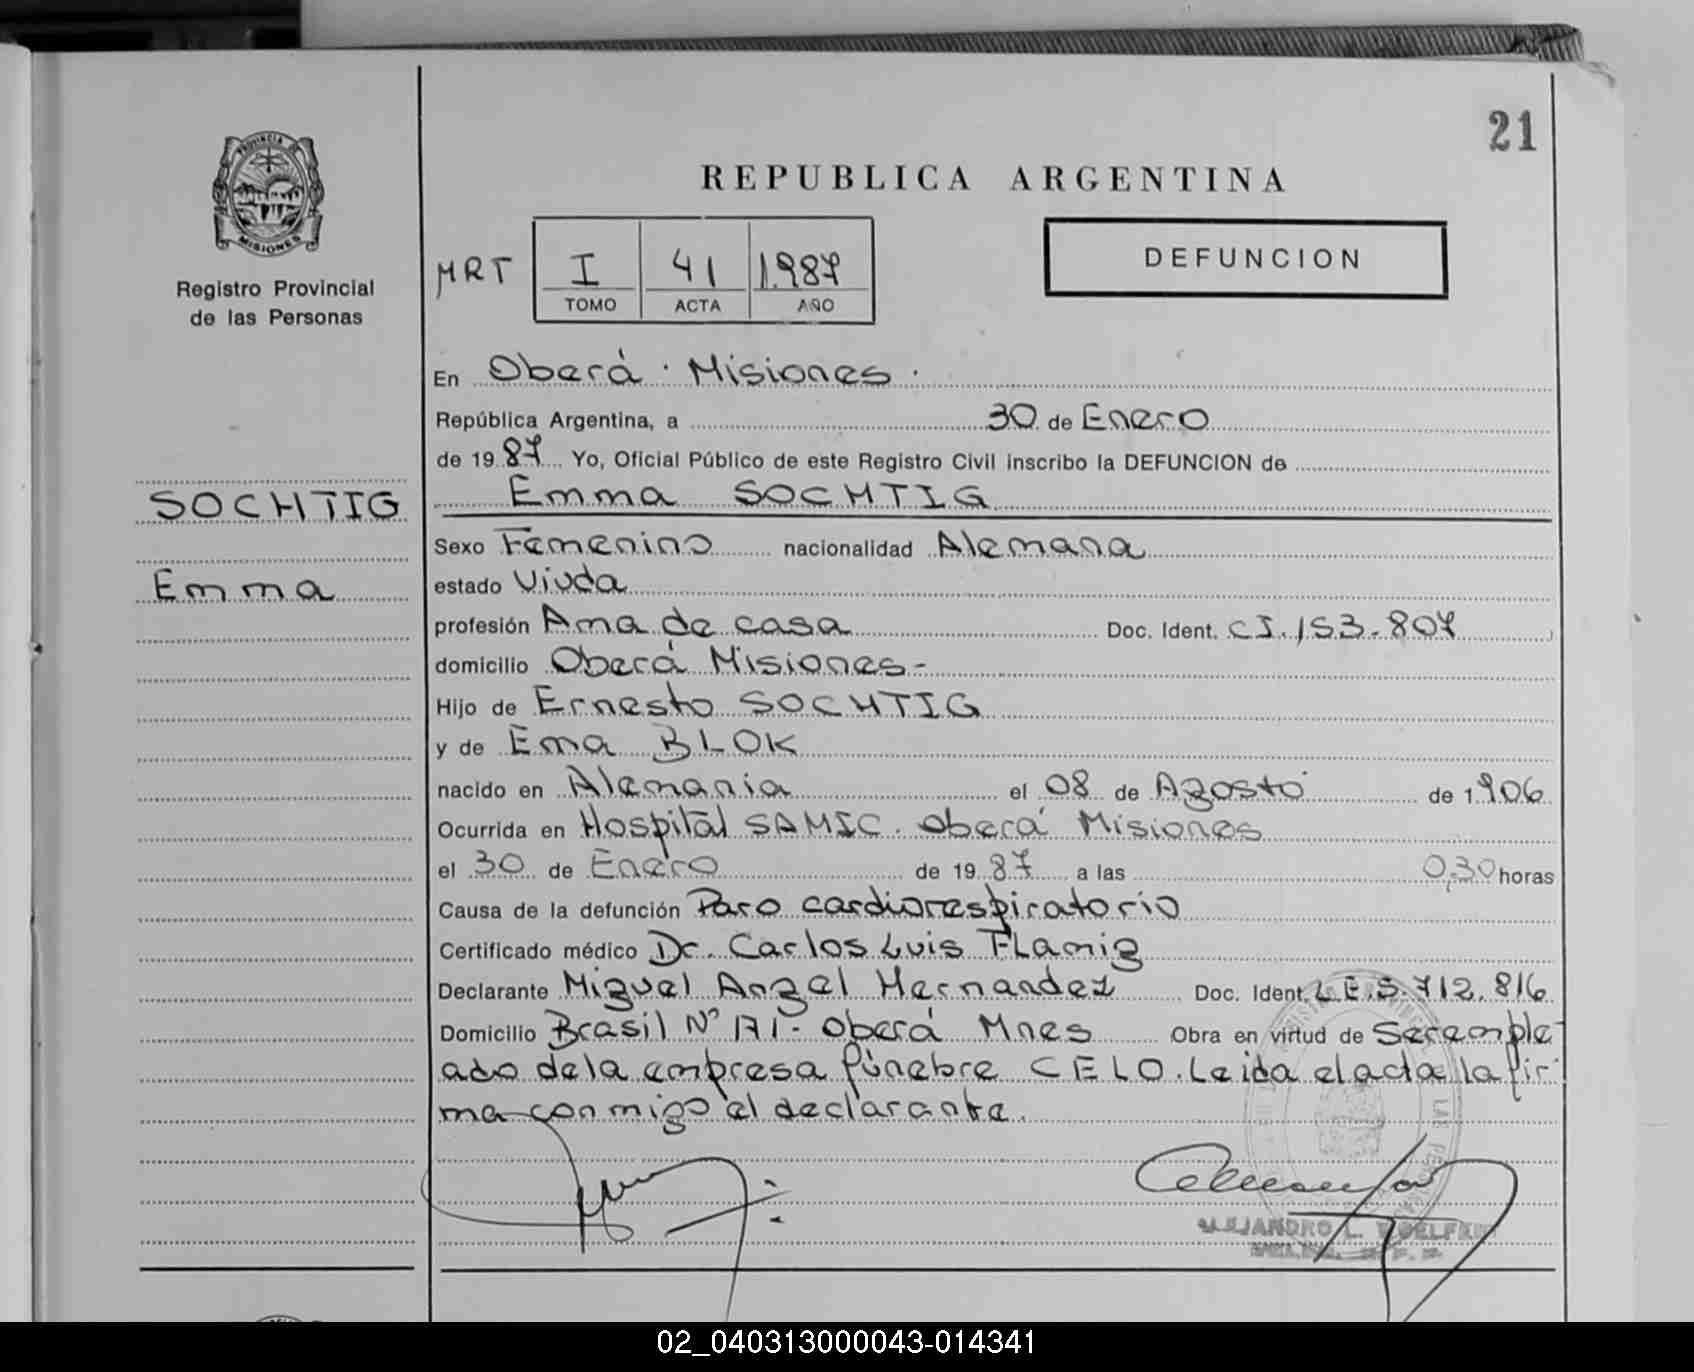 21
PROVINCIA DE
MISIONES
REPUBLICA ARGENTINA
Registro Provincial
de las Personas
MRT I 41 1.987
TOMO ACTA AÑO
DEFUNCION
En Oberá · Misiones ·
República Argentina, a 30 de Enero
de 19 87 Yo, Oficial Público de este Registro Civil inscribo la DEFUNCION de
SOCHTIG
Emma SOCHTIG
Sexo Femenino nacionalidad Alemana
Emma
estado Viuda
profesión Ama de casa Doc. Ident. CI. 153.807
domicilio Oberá Misiones-
Hijo de Ernesto SOCHTIG
y de Ema BLOK
nacido en Alemania el 08 de Agosto de 1906
Ocurrida en Hospital SAMIC. Oberá Misiones
el 30 de Enero de 19 87 a las 0,30 horas
Causa de la defunción Paro cardiorespiratorio
Certificado médico Dr. Carlos Luis Flamig
Declarante Miguel Angel Hernandez Doc. Ident. L.E.5.712.816
Domicilio Brasil N° 171- Oberá Mnes Obra en virtud de Ser emple
ado de la empresa fúnebre CELO. Leida el acta la fir
ma conmigo el declarante.
ALEJANDRO L.
02_040313000043-014341